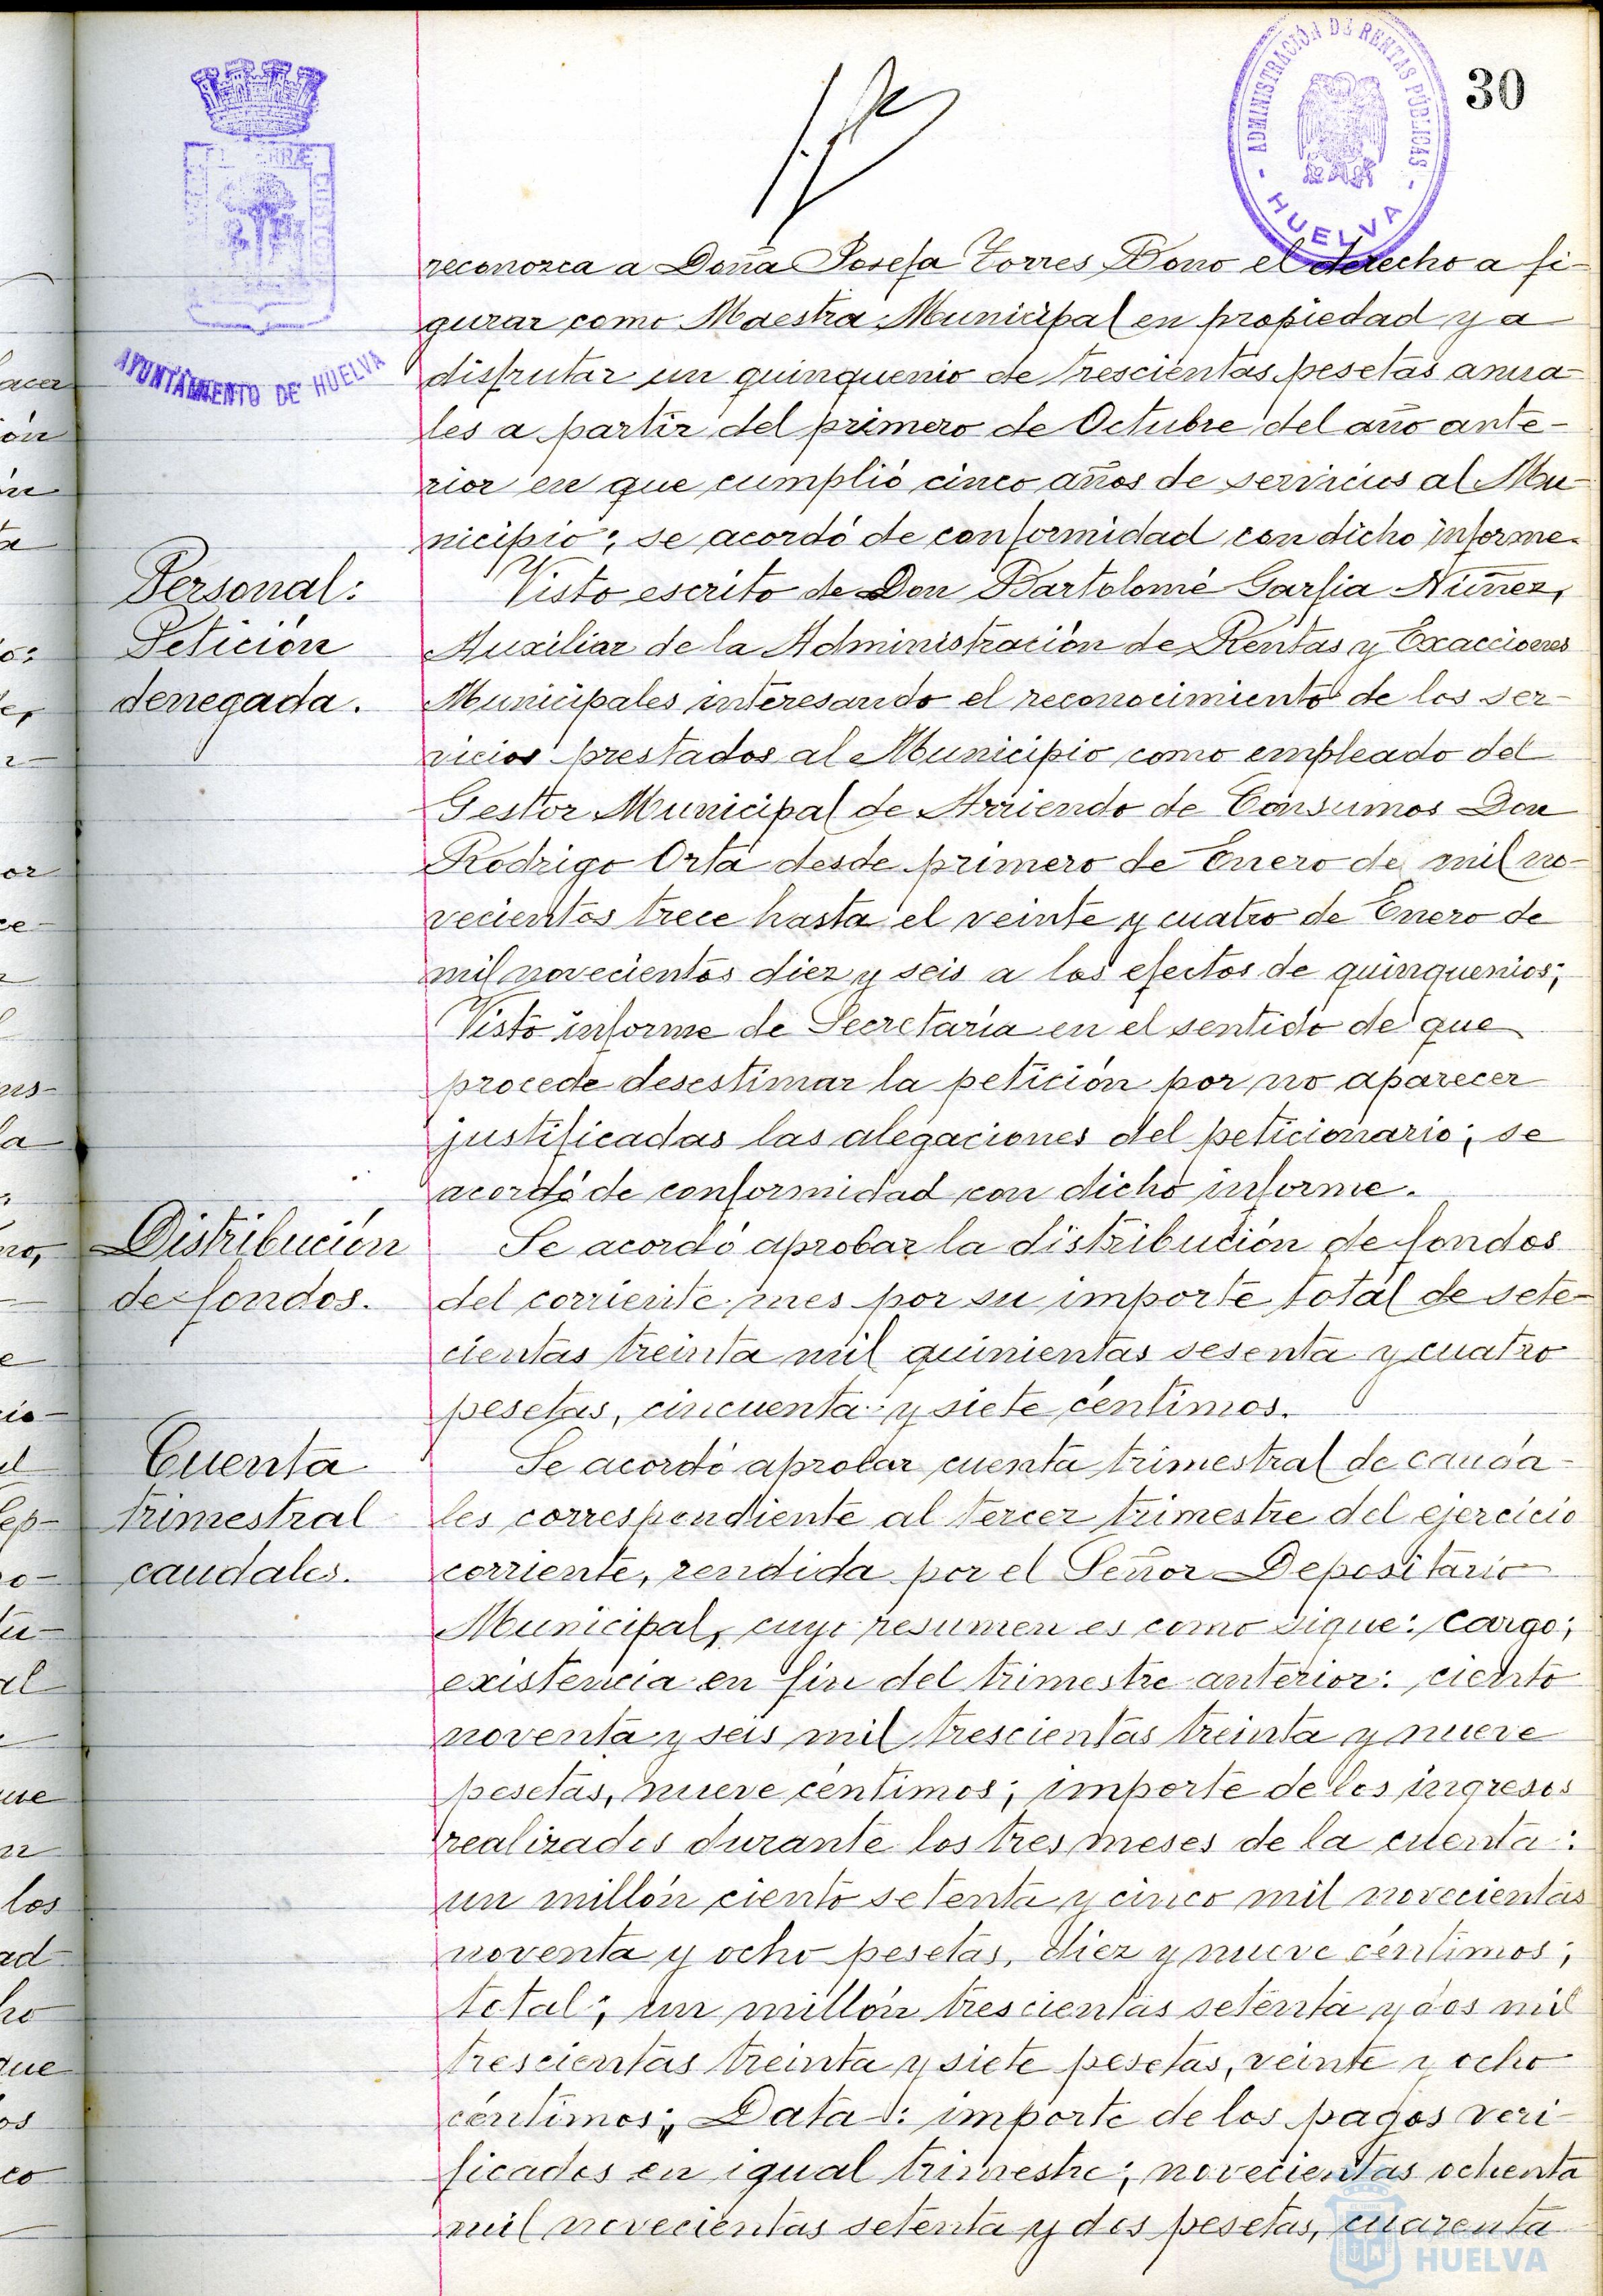 30
ADMINISTRACIÓN DE RENTAS PÚBLICAS
- HUELVA -
AYUNTAMIENTO DE HUELVA
reconozca a Doña Josefa Torres Bono el derecho a fi-
gurar como Maestra Municipal en propiedad y a
disfrutar un quinquenio de trescientas pesetas anua-
les a partir del primero de Octubre del año ante-
rior en que cumplió cinco años de servicios al Mu-
nicipio; se acordó de conformidad con dicho informe.
Personal:
Petición
denegada.
Visto escrito de Don Bartolomé Garfia Núñez,
Auxiliar de la Administración de Rentas y Exacciones
Municipales interesando el reconocimiento de los ser-
vicios prestados al Municipio como empleado del
Gestor Municipal de Arriendo de Consumos Don
Rodrigo Orta desde primero de Enero de mil no-
vecientos trece hasta el veinte y cuatro de Enero de
mil novecientos diez y seis a los efectos de quinquenios;
Visto informe de Secretaría en el sentido de que
procede desestimar la petición por no aparecer
justificadas las alegaciones del peticionario; se
acordó de conformidad con dicho informe.
Distribución
de fondos.
Se acordó aprobar la distribución de fondos
del corriente mes por su importe total de sete-
cientas treinta mil quinientas sesenta y cuatro
pesetas, cincuenta y siete céntimos.
Cuenta
trimestral
caudales.
Se acordó aprobar cuenta trimestral de cauda-
les correspondiente al tercer trimestre del ejercicio
corriente, rendida por el Señor Depositario
Municipal, cuyo resumen es como sigue: Cargo;
existencia en fin del trimestre anterior: ciento
noventa y seis mil trescientas treinta y nueve
pesetas, nueve céntimos; importe de los ingresos
realizados durante los tres meses de la cuenta:
un millón ciento setenta y cinco mil novecientas
noventa y ocho pesetas, diez y nueve céntimos;
total; un millón trescientas setenta y dos mil
trescientas treinta y siete pesetas, veinte y ocho
céntimos; Data: importe de los pagos veri-
ficados en igual trimestre; novecientas ochenta
mil novecientas setenta y dos pesetas, cuarenta
HUELVA